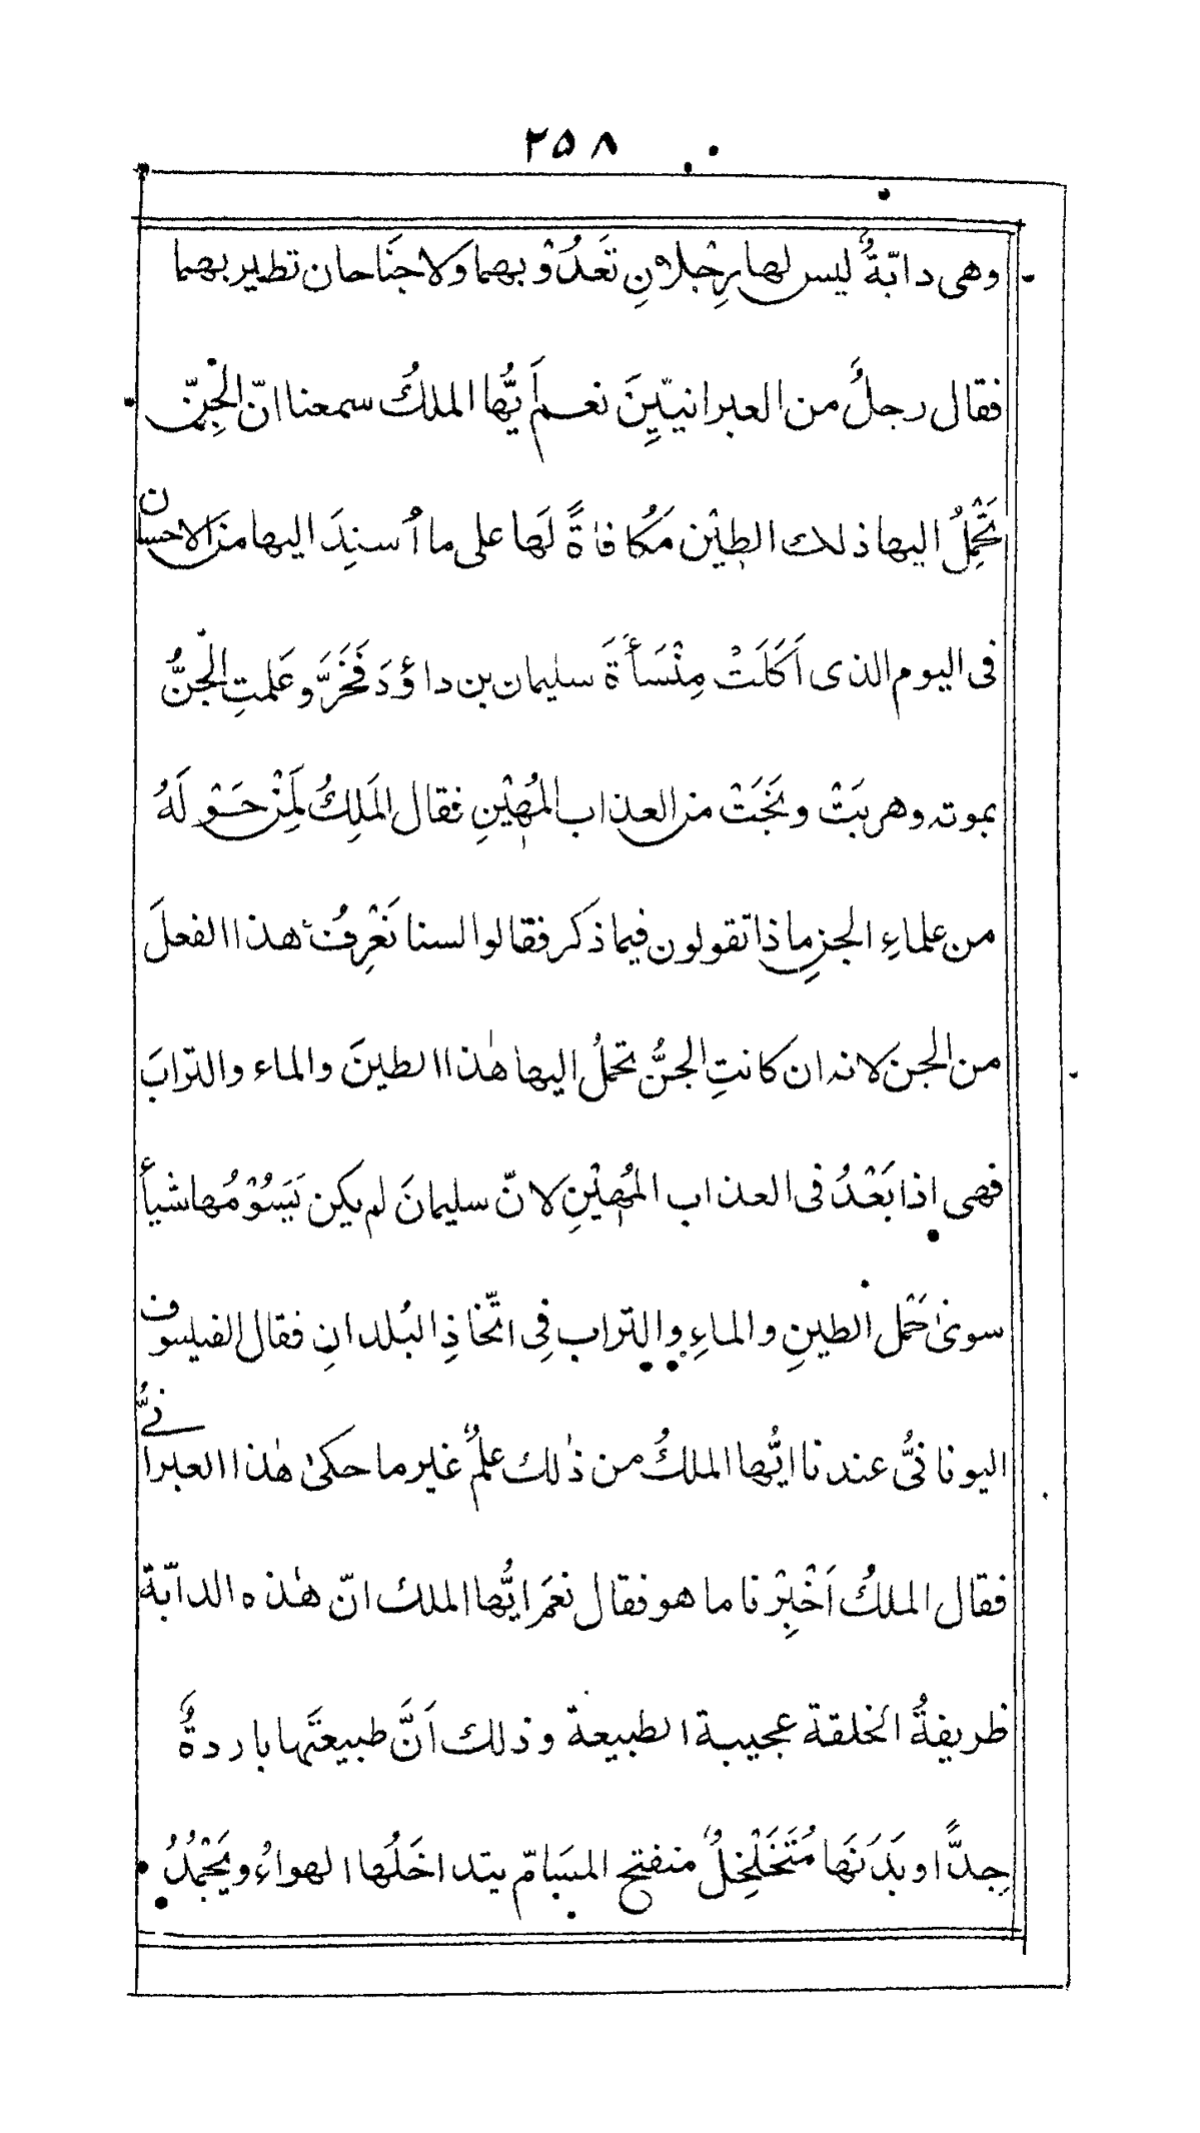 ٢٥٨
وهى دابّةٌ ليس لها رِجْلانِ تَعَدُوْ بهما ولا جنَاحان تطير بهما
فقال رجلٌ من العبرانيّيِنَ نعم أَيُّها الملكُ سمعنا انّ الجِنّ
تَحْمِلُ اليها ذلك الطِيْن مَكُافاةً لَها على ما اُسنِدَ اليها من الاحسان
فى اليوم الذى اَكَلَتْ مِنْسَأَةَ سليمان بن داؤدَ فَخَرَّ وعَلمتِ الجْنُّ
بموته وهربَتْ ونَجَتْ من العذاب المُهِيْنِ فقال المَلِكُ لِمَنْ حَوْلَهُ
من علماءِ الجنِ ما ذا تقولون فيما ذكر فقالوا لسنا نَعْرِفُ هذا الفعلَ
من الجن لانه ان كانتِ الجنُّ تحملُ اليها هٰذا الطينَ والماء والترابَ
فهى اِذا بَعْدُ فى العذاب المُهِيْنِ لانّ سليمانَ لم يكن يَسُوْمُها شيأً
سوىٰ حَمْل الطينِ والماءِ والتراب فِى اتّخاذِ البُلدانِ فقال الفيلسوف
اليونانىُّ عندنا ايُّها الملكُ من ذٰلك علمٌ غير ما حكىٰ هٰذا العبرانىُّ
فقال الملكُ اَخْبِرْنا ما هو فقال نعَم ايُّها الملك انّ هٰذه الدابّة
ظريفةُ الخلقة عجيبة الطبيعة وذلك اَنَّ طبيعتَها باردةٌ
جِدًّا وبَدَنَها مُتَخَلْخِلٌ منفتح المسَامّ يتداخَلُها الهواءُ ويَجْمُدُ